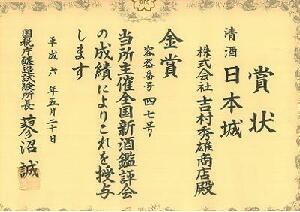 賞状
清酒 日本城
株式会社吉村秀雄商店殿
金賞
容器番号 四七号
当所主催全国新酒鑑評会
の成績によりこれを授与
します
平成六年五月二十日
国税庁醸造試験所長 蓼沼 誠